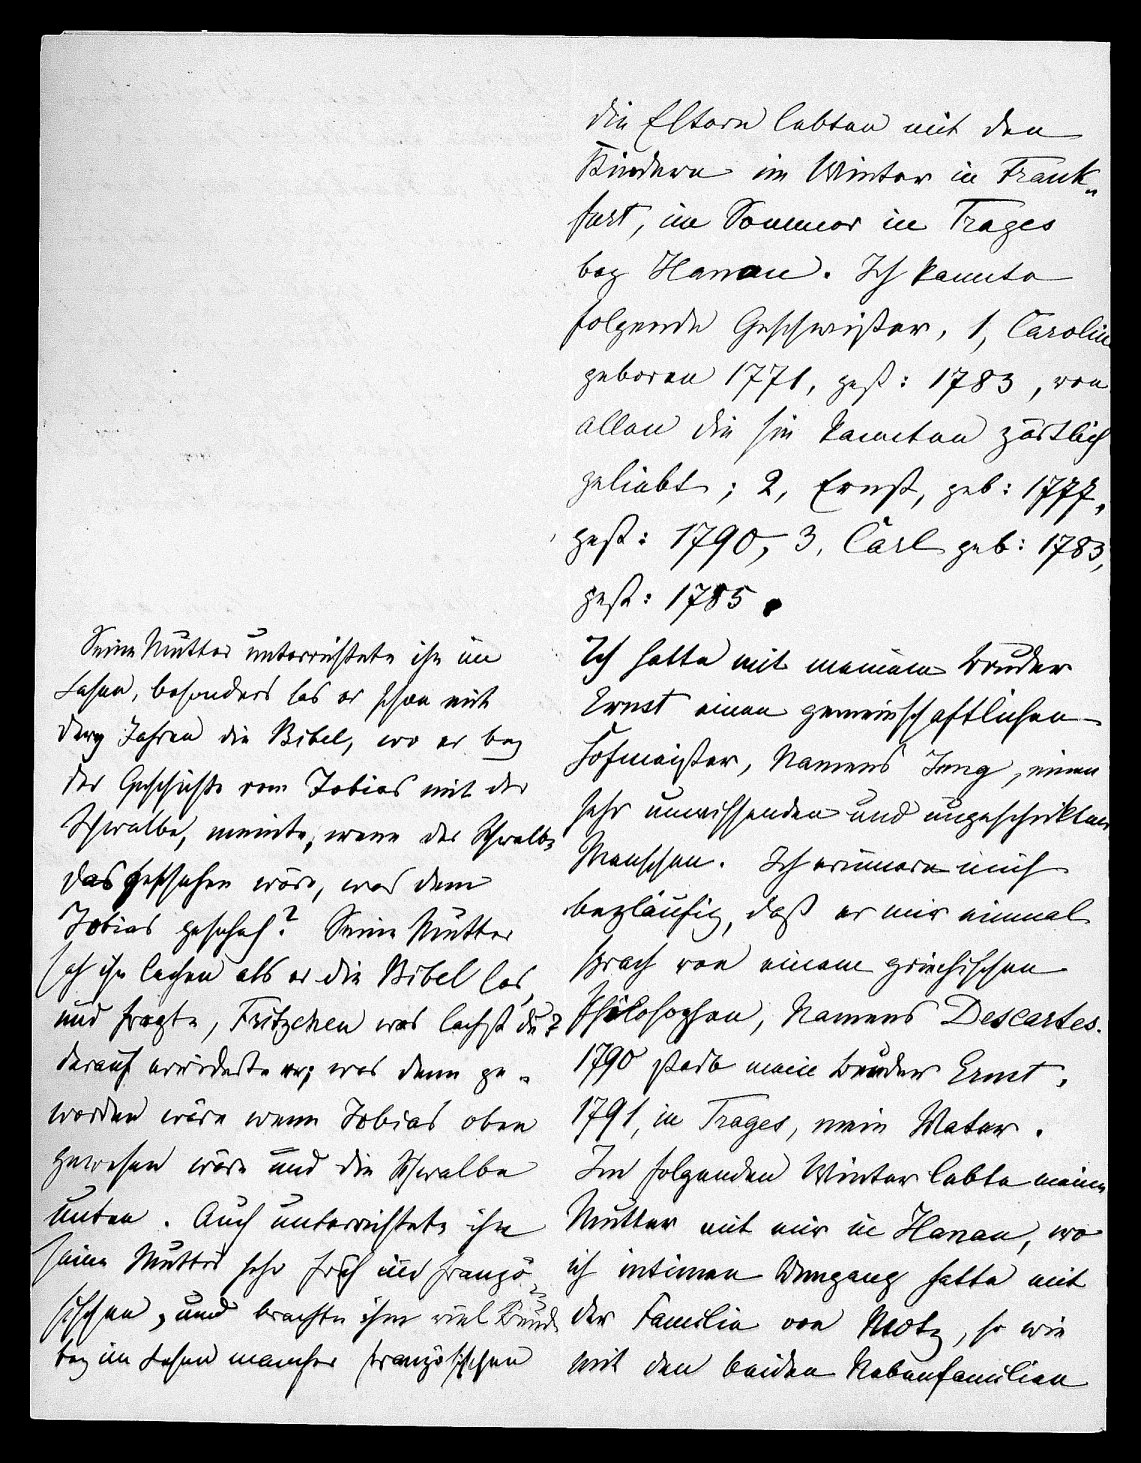 die Eltern lebten mit den
Kindern im Winter in Frank„
furt, im Sommer in Trages
bey Hanau. Ich kannte
folgende Geschwister, 1, Carolin
geboren 1771, gest: 1783, von
allen die sie kannten zärtlich
geliebt; 2, Ernst, geb: 1777,
gest: 1790, 3, Carl geb: 1783,
gest: 1785.
Ich hatte mit meinem Bruder
Ernst einen gemeinschaftlichen
Hofmeister, Namens Jung, einen
sehr unwissenden und ungeschickten
Menschen. Ich erinnere mich
beyläufig, daß er mir einmal
sprach von einem griechischen
Philosophen, Namens Descartes.
1790 starb mein Bruder Ernst,
1791, in Trages, mein Vater.
Im folgenden Winter lebte meine
Mutter mit mir in Hanau, wo
ich intimen Umgang hatte mit
der Familie von Motz, so wie
mit den beiden Nebenfamilien
Seine Mutter unterrichtete ihn im
Lesen, besonders las er schon mit
drey Jahren die Bibel, wo er bey
der Geschichte vom Tobias mit der
Schwalbe, meinte, wenn der Schwalbe
das geschehen wäre, was dem
Tobias geschah? Seine Mutter
sah ihn lachen als er die Bibel las,
und fragte, Fritzchen was lachst du?
darauf erwiderte er; was denn ge„
worden wäre wenn Tobias oben
gewesen wäre und die Schwalbe
unten. Auch unterrichtete ihn
seine Mutter sehr früh im Franzö„
sischen, und brachte ihm viel
bey im Lesen mancher französischen